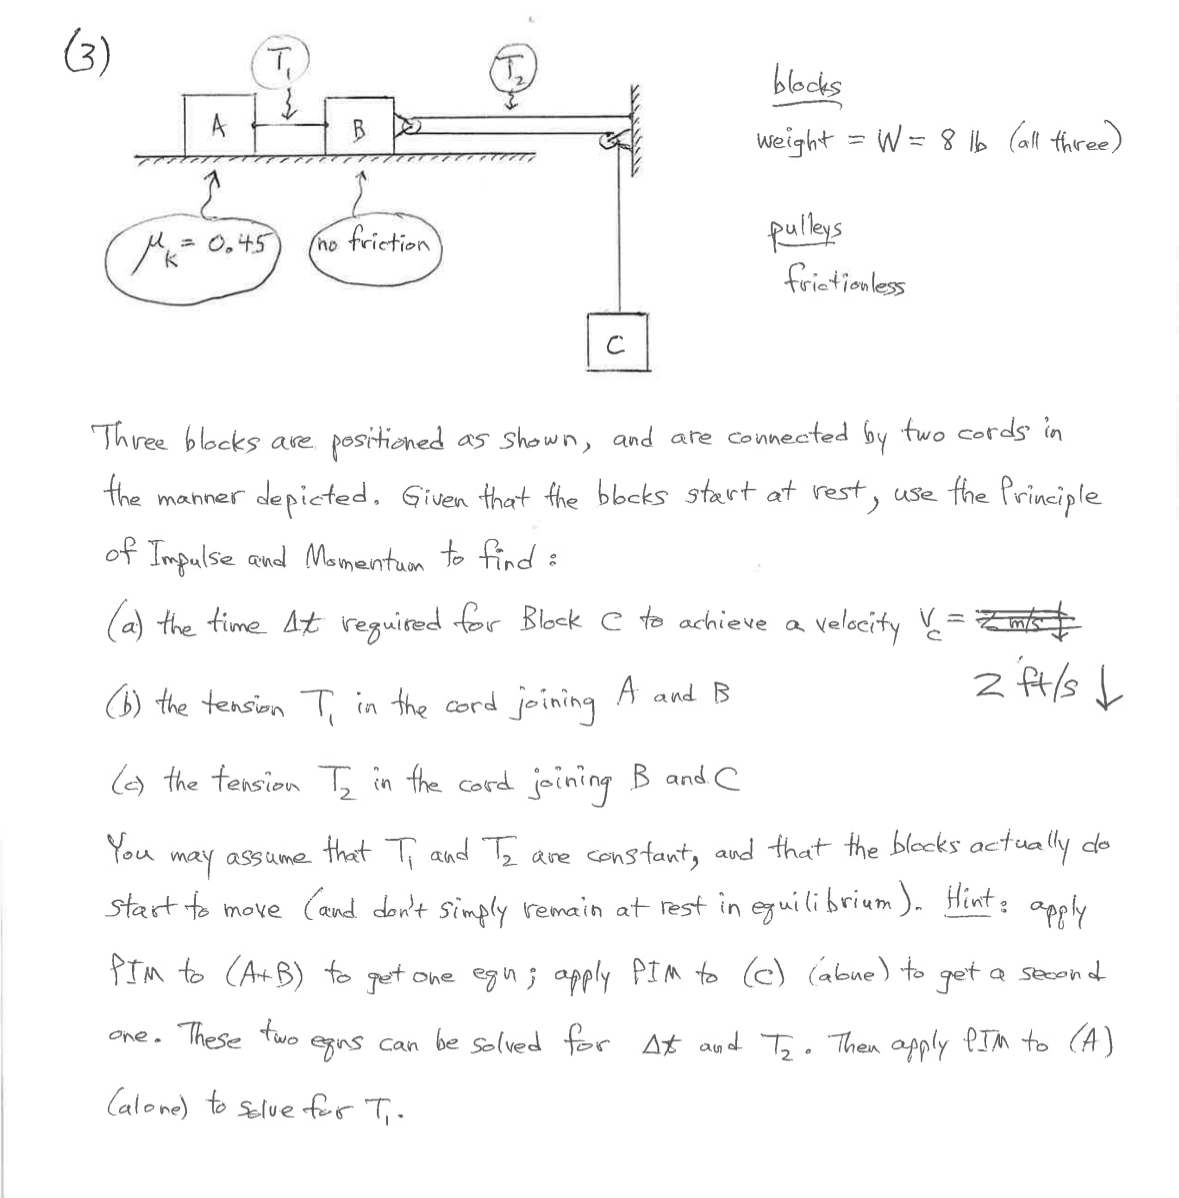 (3)
T₁
T₂
A
B
C
μₖ = 0.45
no friction
blocks
weight = W = 8 lb (all three)
pulleys
frictionless
Three blocks are positioned as shown, and are connected by two cords in
the manner depicted. Given that the blocks start at rest, use the Principle
of Impulse and Momentum to find :
(a) the time Δt required for Block C to achieve a velocity V_C = 2 m/s ↓
2 ft/s ↓
(b) the tension T₁ in the cord joining A and B
(c) the tension T₂ in the cord joining B and C
You may assume that T₁ and T₂ are constant, and that the blocks actually do
start to move (and don't simply remain at rest in equilibrium). Hint : apply
PIM to (A+B) to get one eqn ; apply PIM to (C) (alone) to get a second
one. These two eqns can be solved for Δt and T₂. Then apply PIM to (A)
(alone) to solve for T₁.